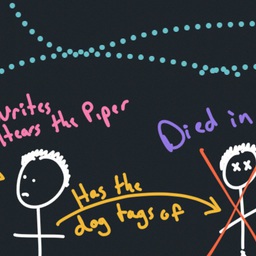 writes
Hears the Piper
Died in
Has the
dog tags of